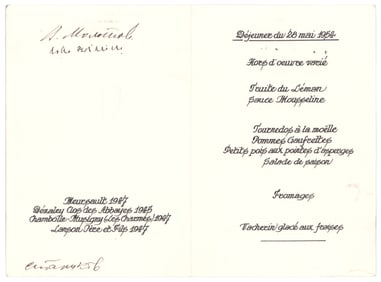 В. Молотов
Meursault 1947
Dézaley Clos des Abbayes 1945
Chambolle-Musigny (Les Charmes) 1947
Lanson Père et Fils 1947
Déjeuner du 26 mai 1954
Hors d'oeuvre varié
Truite du Léman
Sauce Mousseline
Tournedos à la moëlle
Pommes Gaufrettes
Petits pois aux pointes d'asperges
Salade de saison
Fromages
Vacherin glacé aux fraises